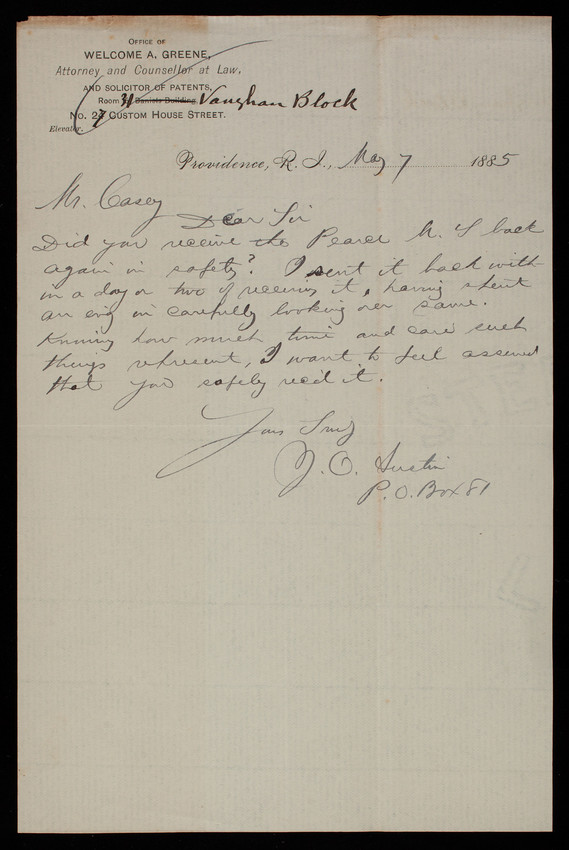 OFFICE OF
WELCOME A. GREENE,
Attorney and Counsellor at Law,
AND SOLICITOR OF PATENTS,
Room 31 Daniels Building. Vaughan Block
No. 7 CUSTOM HOUSE STREET.
Elevator.
Providence, R. I., May 7 1885
Mr. Casey
Dear Sir
Did you receive the Pearce M. S back
again in safety? I sent it back with-
in a day or two of receiving it, having spent
an evg in carefully looking over same.
Knowing how much time and care such
things represent, I want to feel assured
that you safely rec'd it.
Yours Truly
J. O. Austin
P. O. Box 81